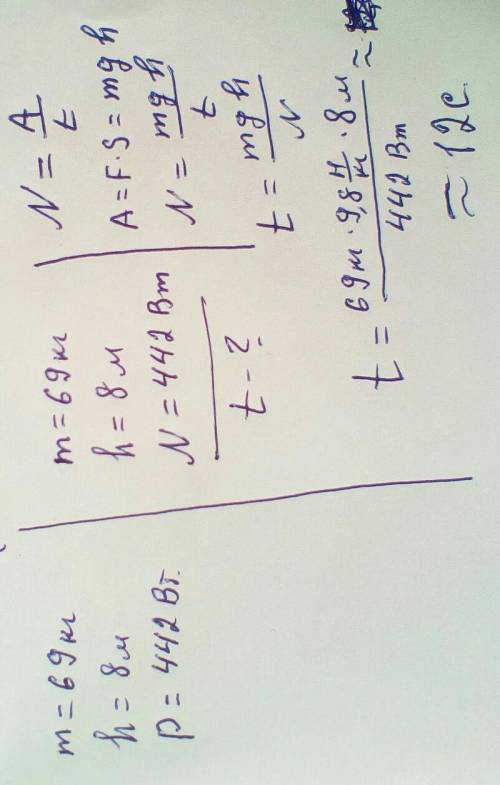 m = 69 кг
h = 8 м
P = 442 Вт.
m = 69 кг
h = 8 м
N = 442 Вт
t - ?
N = A/t
A = F·S = mgh
N = mgh/t
t = mgh/N
t = 69 кг · 9,8 Н/кг · 8 м / 442 Вт ≈
≈ 12 с.